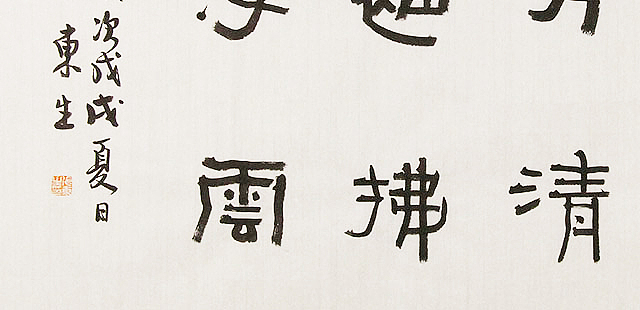 清
拂
雲
次戊戌夏日
東生